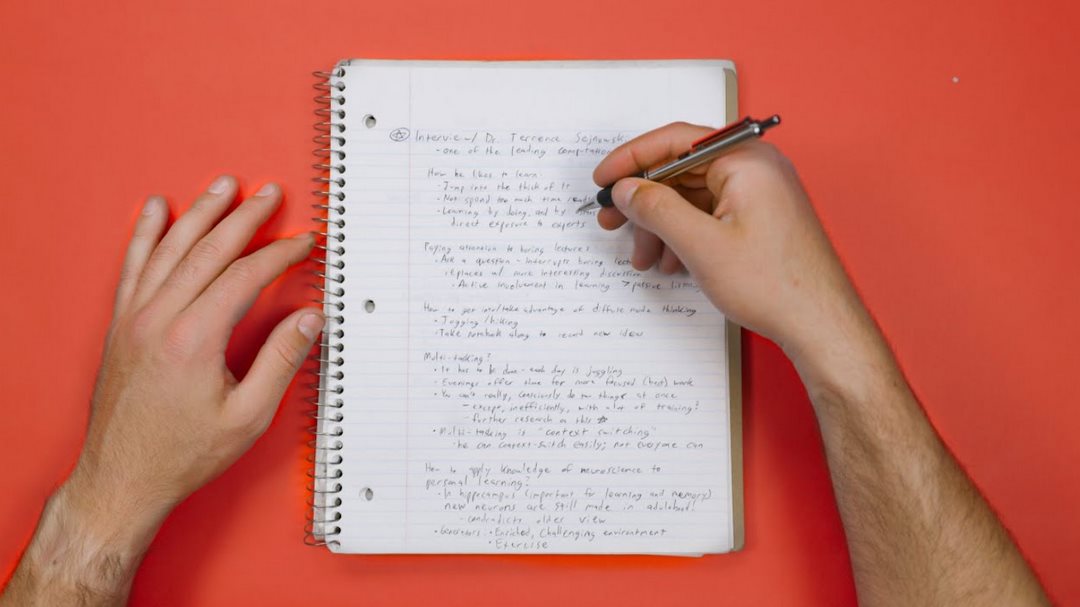 Interview w/ Dr. Terrence Sejnowski
- one of the leading computation
How he likes to learn:
- Jump into the thick of it
- Not spend too much time
- Learning by doing, and by
direct exposure to experts
Paying attention to boring lectures
• Ask a question - interrupts boring
replaces w/ more interesting discussion
• Active involvement in learning > passive
How to get into/take advantage of diffuse mode thinking
• Jogging/hiking
• Take notebook along to record new ideas
Multi-tasking?
• It has to be done - each day is juggling
• Evenings offer time for more focused (best) work
• You can't really, consciously do two things at once
- except, inefficiently, with a lot of training?
- further research on this
• Multi-tasking is "context switching"
• he can context-switch easily; not everyone can
How to apply knowledge of neuroscience to
personal learning?
• In hippocampus (important for learning and memory)
new neurons are still made in adulthood!
- contradicts older view
• Generators: • Enriched, challenging environment
• Exercise